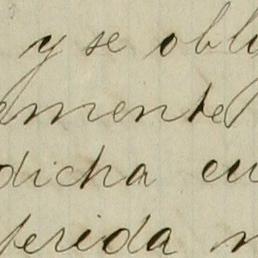 y se obli
emente
dicha cu
ferida